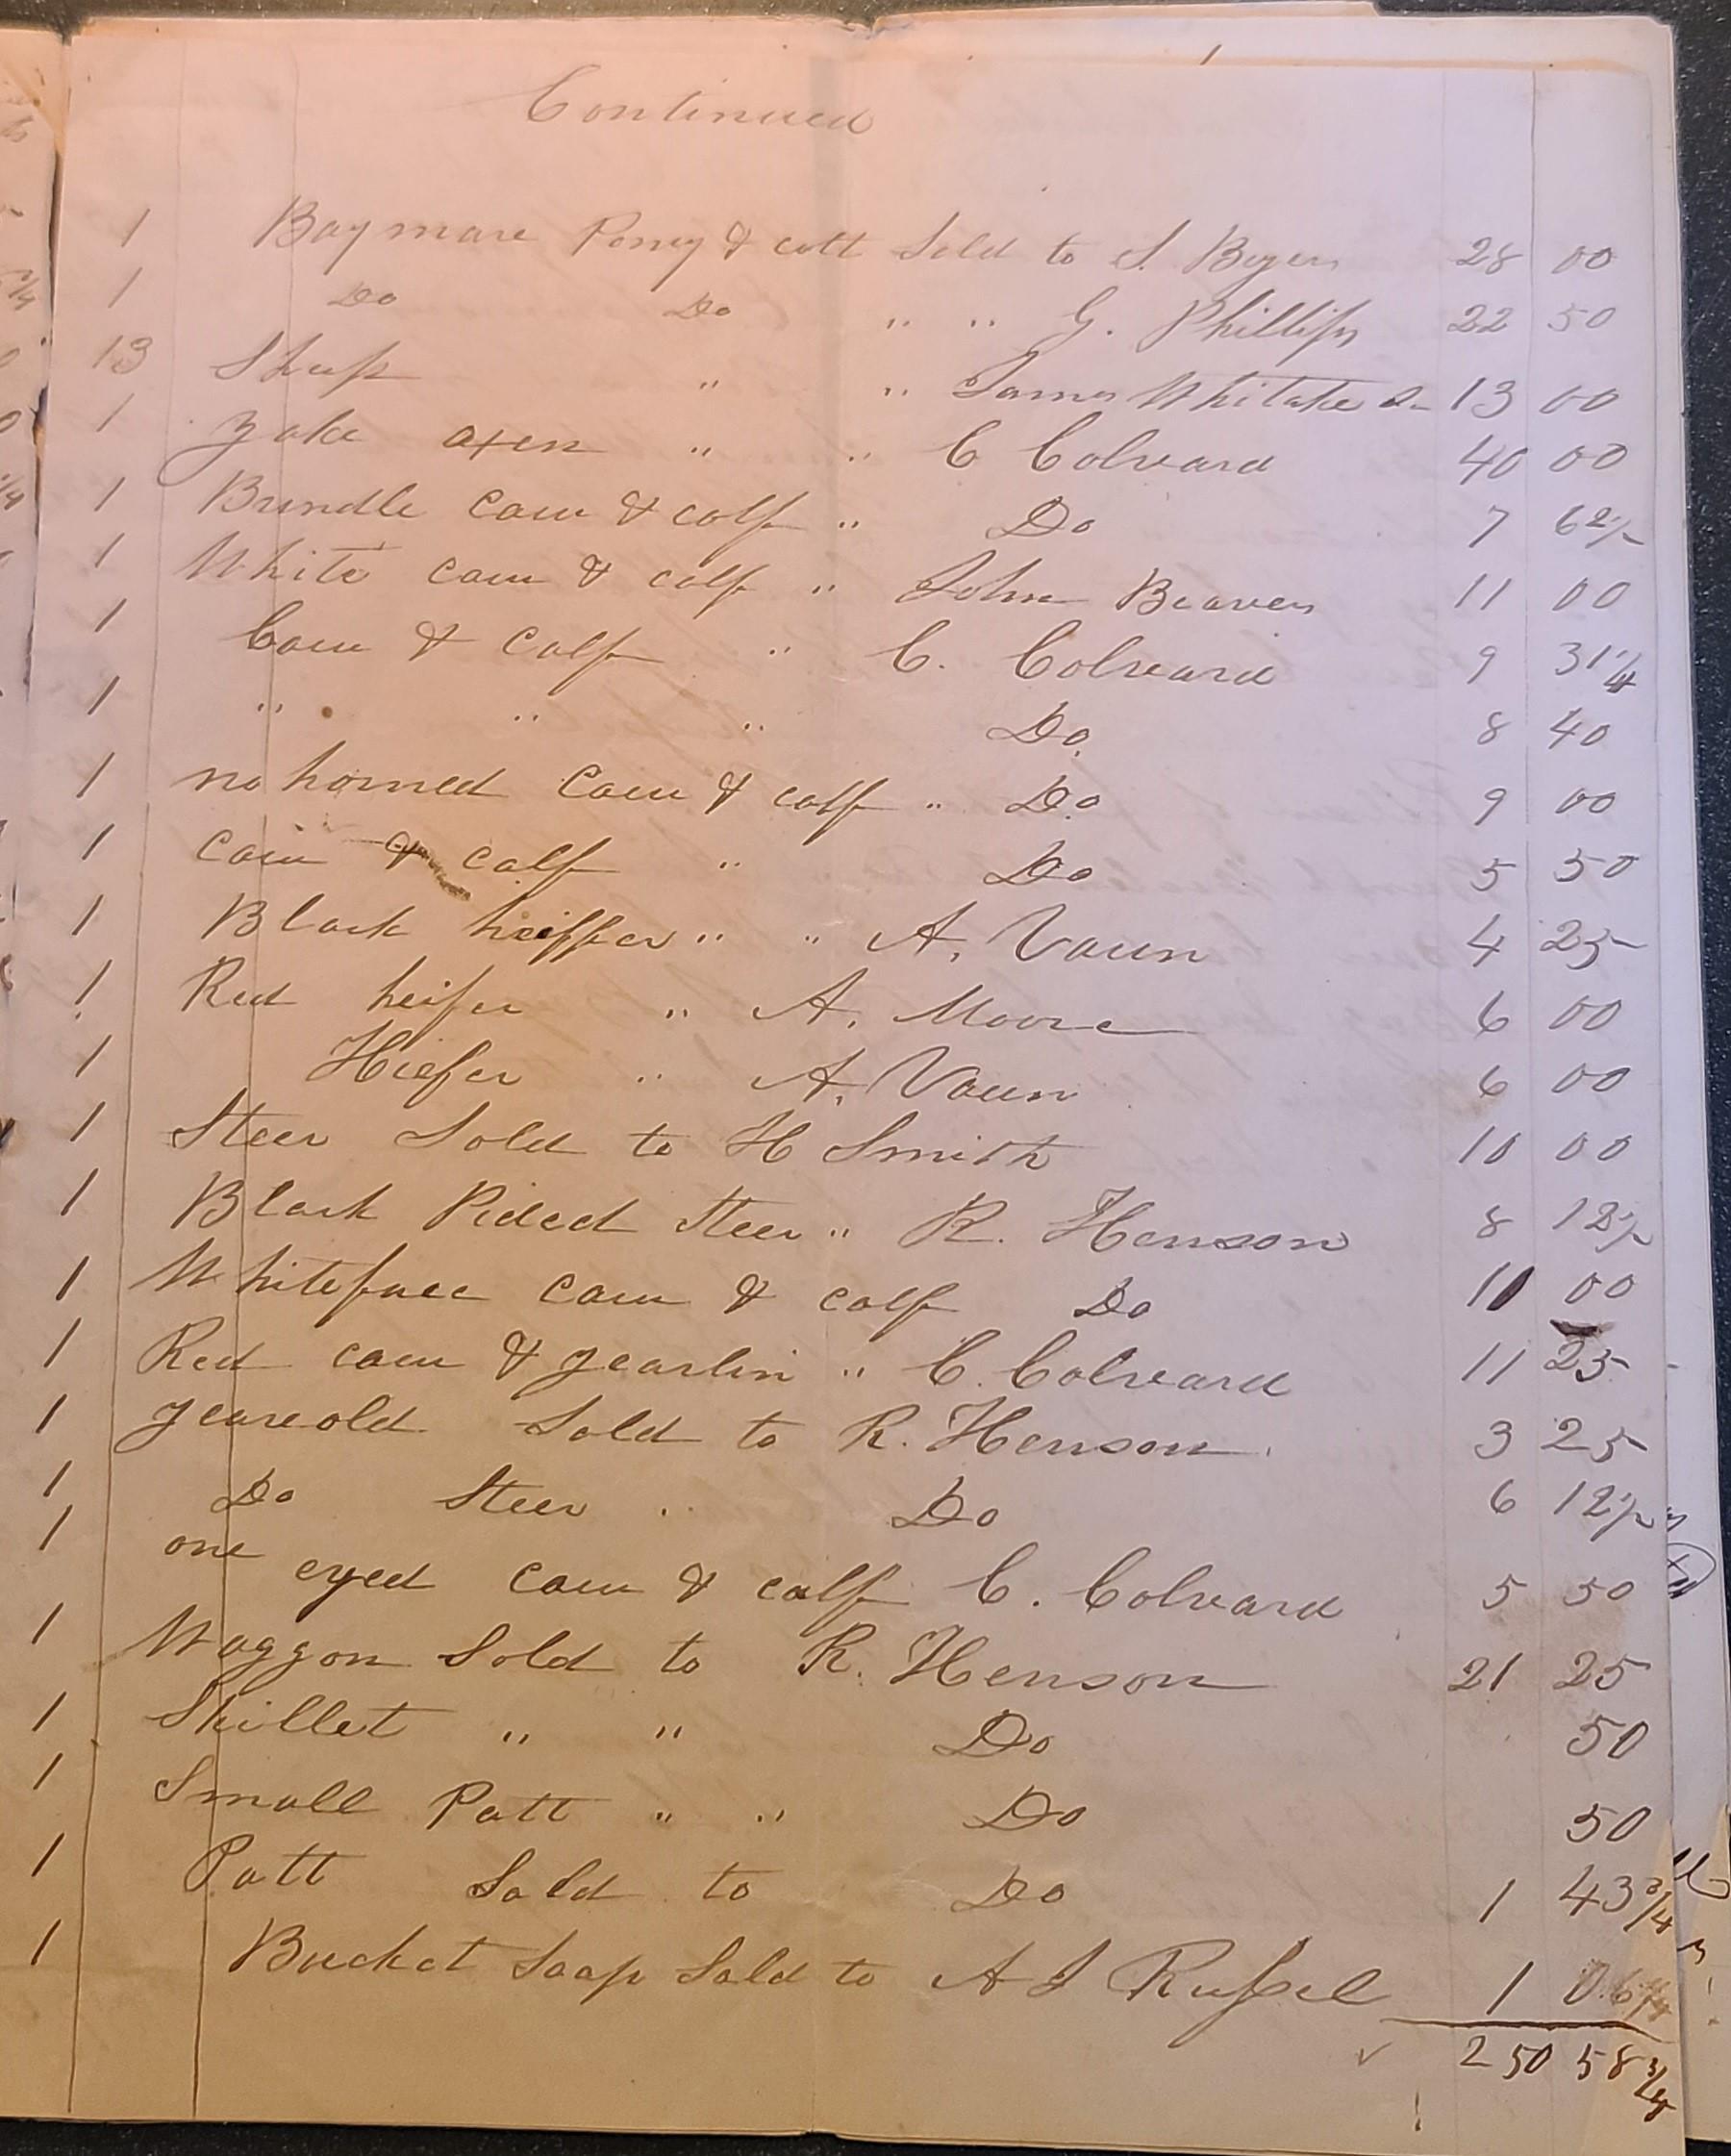 Continued
1 Bay mare Poney & colt Sold to S. Byers 28 00
1 Do Do " " G. Phillips 22 50
13 Sheep " " James Whitake Sr 13 00
1 Yoke oxen " " C Colveard 40 00
1 Brindle Cow & calf " Do 7 62 1/2
1 White cow & calf " John Beavers 11 00
1 Cow & Calf " C. Colveard 9 31 1/4
1 " " " Do 8 40
1 no horned Cow & calf " Do 9 00
1 Cow & calf " Do 5 50
1 Black heiffer " " A. Vaun 4 25
1 Red heifer " A. Moore 6 00
1 Hiefer " A. Vaun 6 00
1 Steer Sold to H Smith 10 00
1 Black Pided Steer " R. Henson 8 12 1/2
1 Whiteface Cow & calf Do 10 00
1 Red cow & yearlin " C. Colveard 11 25
1 yeareold Sold to R. Henson 3 25
1 Do Steer " Do 6 12 1/2
1 one eyed cow & calf C. Colveard 5 50
1 Waggon Sold to R. Henson 21 25
1 Skillet " " Do 50
1 Small Patt " " Do 50
1 Patt Sold to Do 1 43 3/4
1 Bucket Soap Sold to A J Russel 1 06 1/4
250 58 3/4